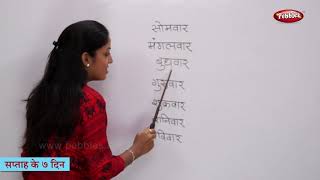 Pebbles
सोमवार
मंगलवार
बुधवार
गुरुवार
शुक्रवार
शनिवार
रविवार
www.pebbles
सप्ताह के ७ दिन